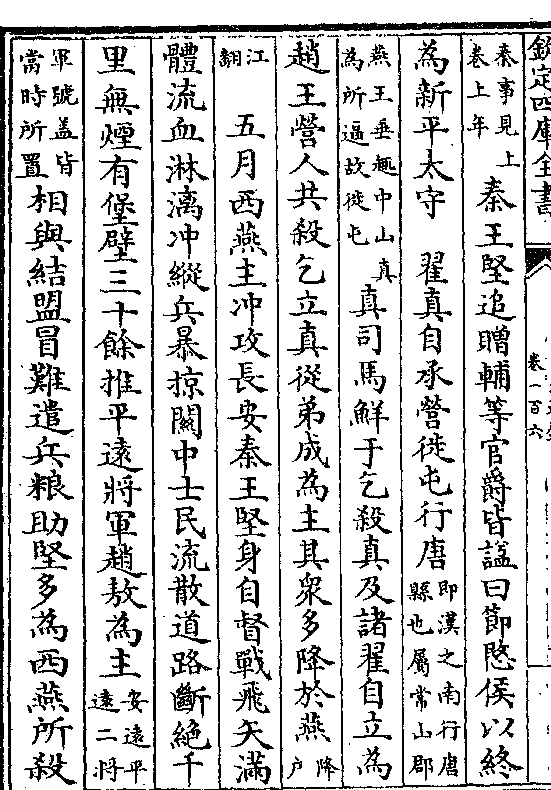 欽定四庫全書
卷一百六
秦事見上卷上年 秦王堅追贈輔等官爵皆諡曰節愍侯以終
為新平太守　翟真自承營徙屯行唐即漢之南行唐縣也屬常山郡
燕王垂趣中山真為所逼故徙屯真司馬鮮于乞殺真及諸翟自立為
趙王營人共殺乞立真從弟成為主其衆多降於燕降户
江翻　五月西燕主冲攻長安秦王堅身自督戰飛矢滿
體流血淋漓冲縱兵暴掠關中士民流散道路斷絶千
里無煙有堡壁三十餘推平遠將軍趙敖為主安遠平遠二將
軍號盖皆當時所置相與結盟冒難遣兵粮助堅多為西燕所殺